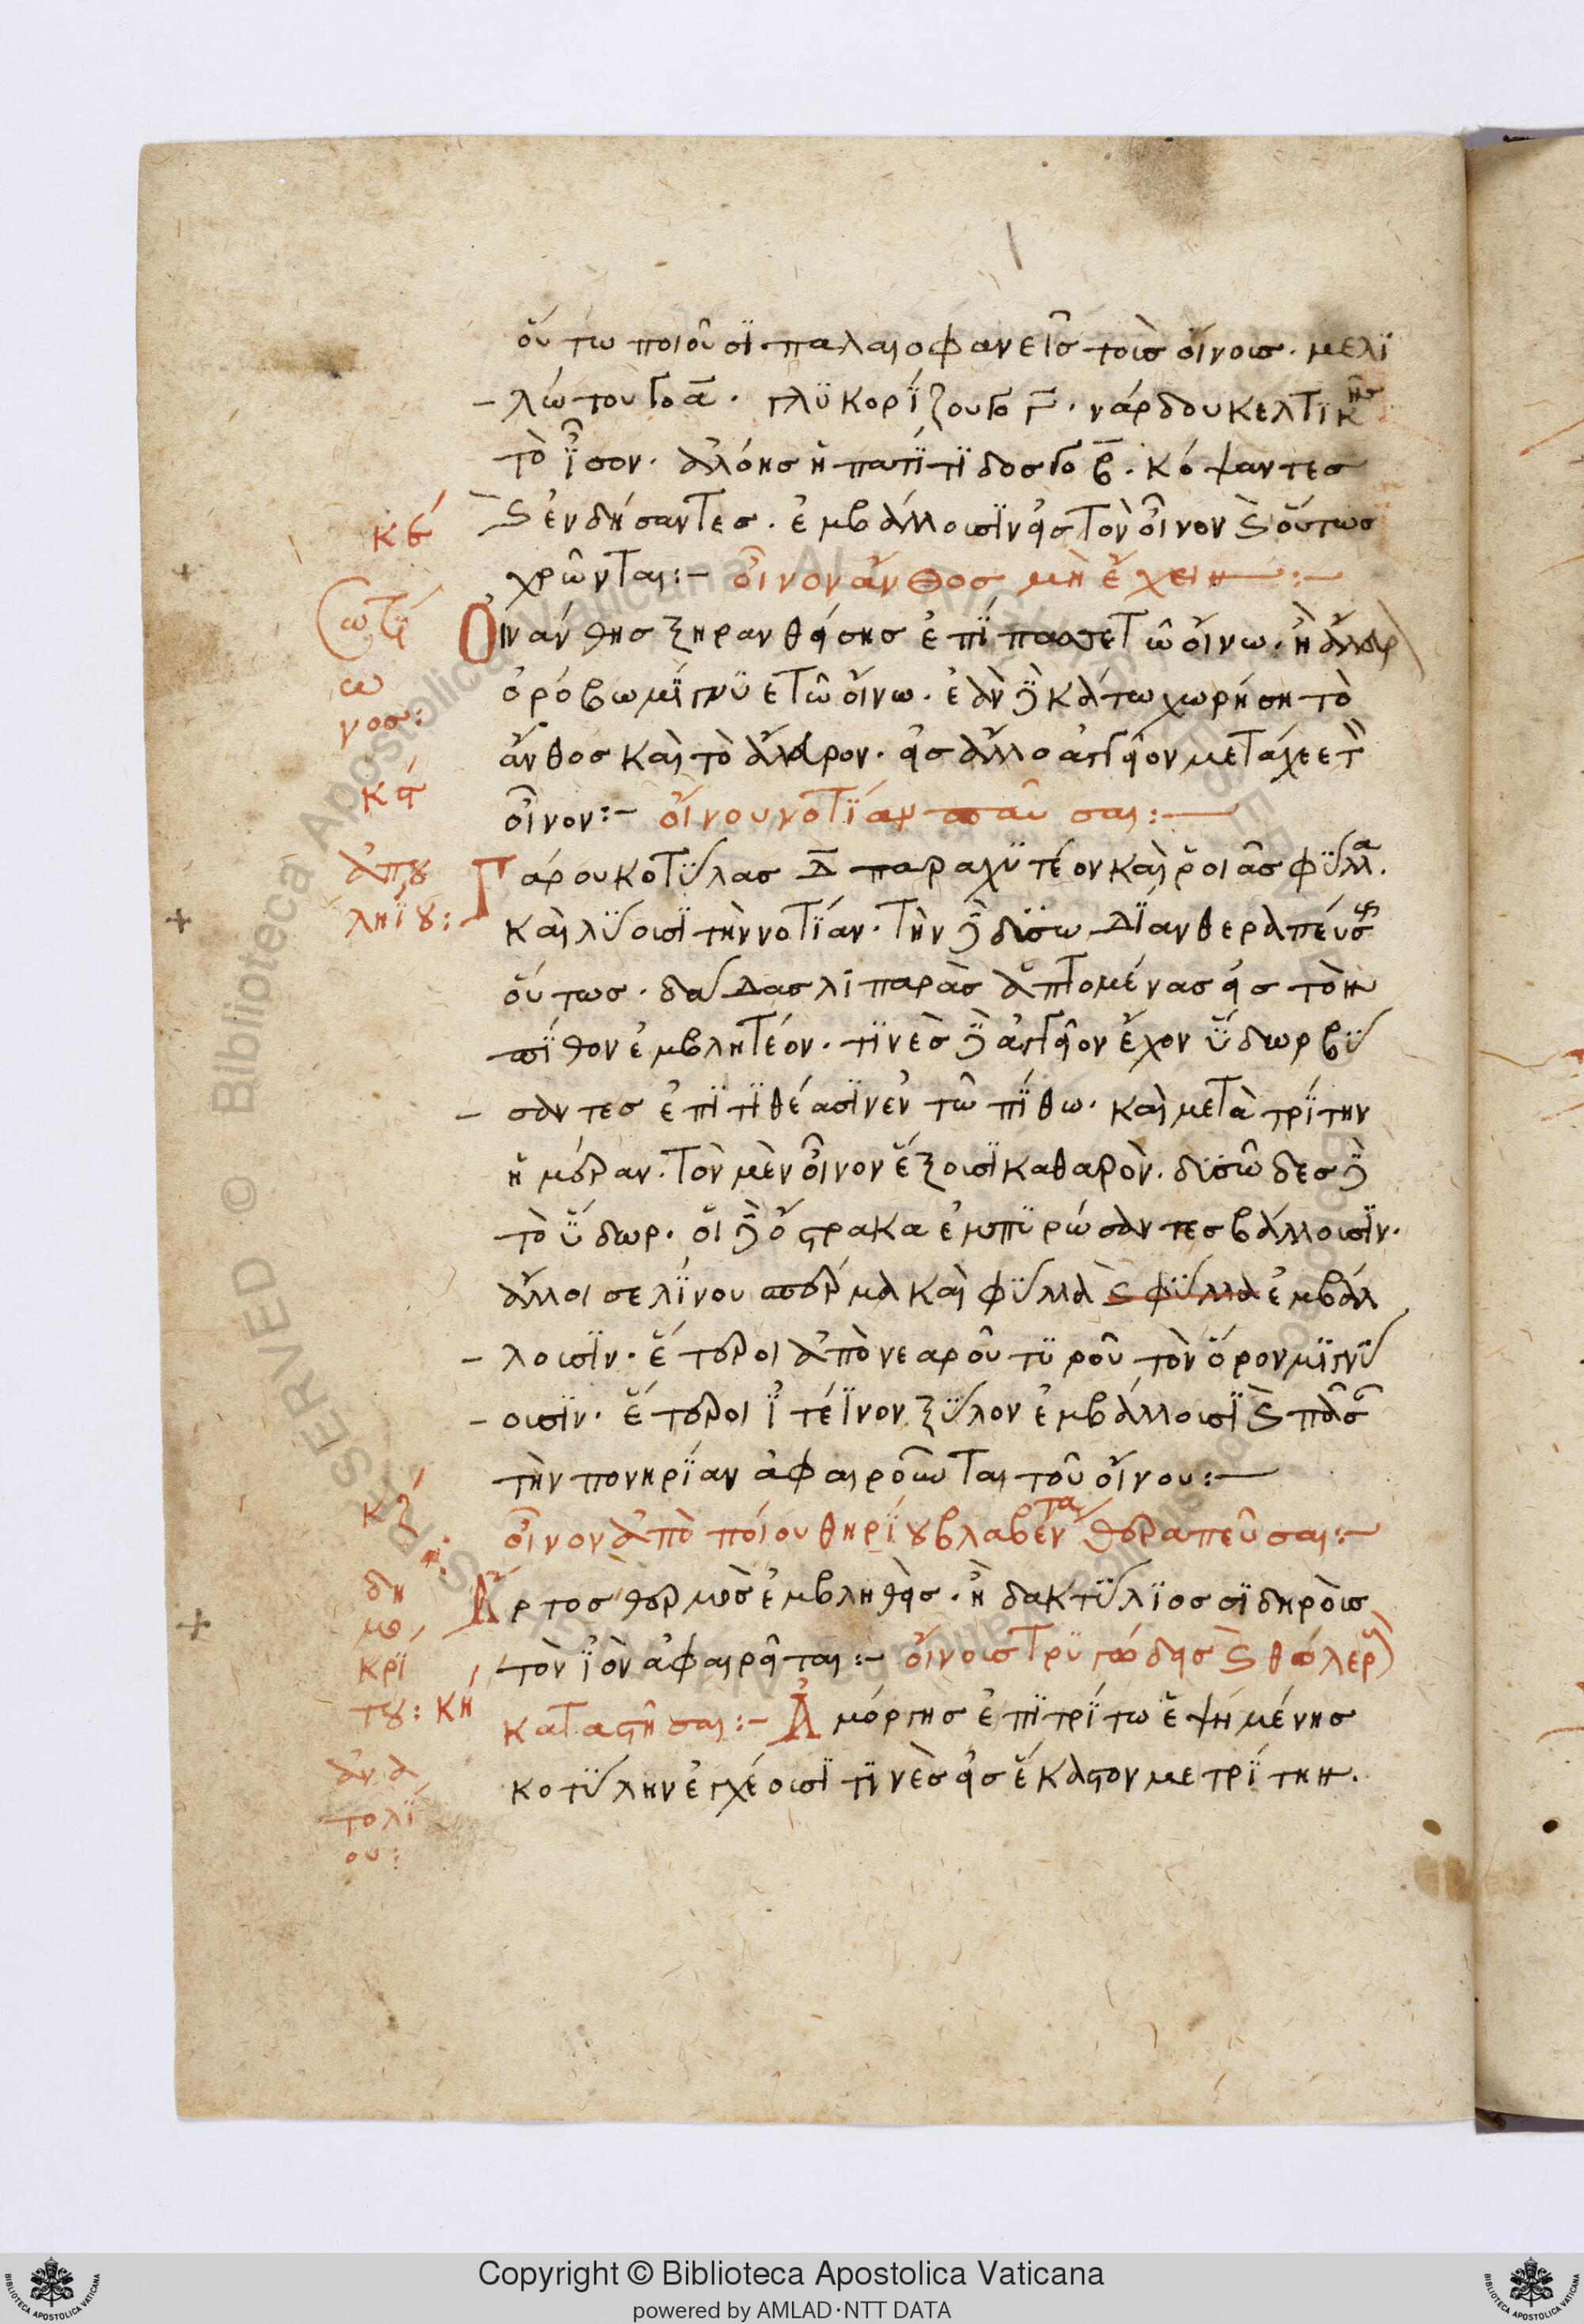 οὕτω ποιοῦσϊ παλαιοφανεῖς τοὺς οἴνους. μελϊ
λώτου γο α. γλυκορίζου γο γ. νάρδου κελτικῆς
τὸ ἶσον. ἀλόης ἡπατίτϊδος γο β. κόψαντες
κε
καὶ ἐνδήσαντες. ἐμβάλλουσϊν εἰς τὸν οἶνον καὶ οὕτως
χρῶνται:– οἶνον ἄνθος μὴ ἔχειν:–
σωτϊ
ω
νος:
Οἰνάνθης ξηρανθείσης ἐπίπασσε τῶ οἴνω. ἢ ἄλευρ
ὀρόβω μίγνυε τῶ οἴνω. ἐὰν δὲ κάτω χωρήση τὸ
ἄνθος καὶ τὸ ἄλευρον. εἰς ἄλλο ἀγγεῖον μετάχεε τὸν
κς
οἶνον:– οἴνου νοτίαν παῦσαι:–
ἀπου
ληΐου:
Γάρου κοτύλας δ παραχυτέον καὶ ῥοιᾶς φύλλα.
καὶ λύουσϊ τὴν νοτίαν. τὴν δὲ δυσωδίαν θεραπεύσεις
οὕτως. δαίδας λιπαρὰς ἁπτομένας εἰς τὸν
πίθον ἐμβλητέον. τινὲς δὲ ἀγγεῖον ἔχον ὕδωρ βύ
σαντες ἐπιτιθέασϊν ἐν τῶ πίθω. καὶ μετὰ τρίτην
ἡμέραν. τὸν μὲν οἶνον ἕξουσϊ καθαρὸν. δυσῶδες δὲ
τὸ ὕδωρ. οἱ δὲ ὄστρακα ἐμπυρώσαντες βάλλουσϊν.
ἄλλοι σελίνου σπέρμα καὶ φύλλα καὶ φύλλα ἐμβάλ
λουσϊν. ἕτεροι ἀπὸ νεαροῦ τυροῦ τὸν ὄρον μιγνύ
ουσϊν. ἕτεροι ἰτέϊνον ξύλον ἐμβάλλουσϊ καὶ πᾶσαν
τὴν πονηρίαν ἀφαιροῦνται τοῦ οἴνου:–
κζ
οἶνον ἀπὸ ποίου θηρίου βλαβέντα θεραπεῦσαι:–
δη
μο
κρϊ
του:
Ἄρτος θερμὸς ἐμβληθεὶς. ἢ δακτύλιος σιδηροῦς
τὸν ἰὸν ἀφαιρεῖται:– οἴνους τρυγώδεις καὶ θολερ
κη
καταστῆσαι:– Ἀμόργης ἐπὶ τρίτω ἑψημένης
κοτύλην ἐγχέουσϊ τινὲς εἰς ἕκαστον μετρίτην.
ἀνα
τολΐ
ου:
Copyright © Biblioteca Apostolica Vaticana
powered by AMLAD·NTT DATA